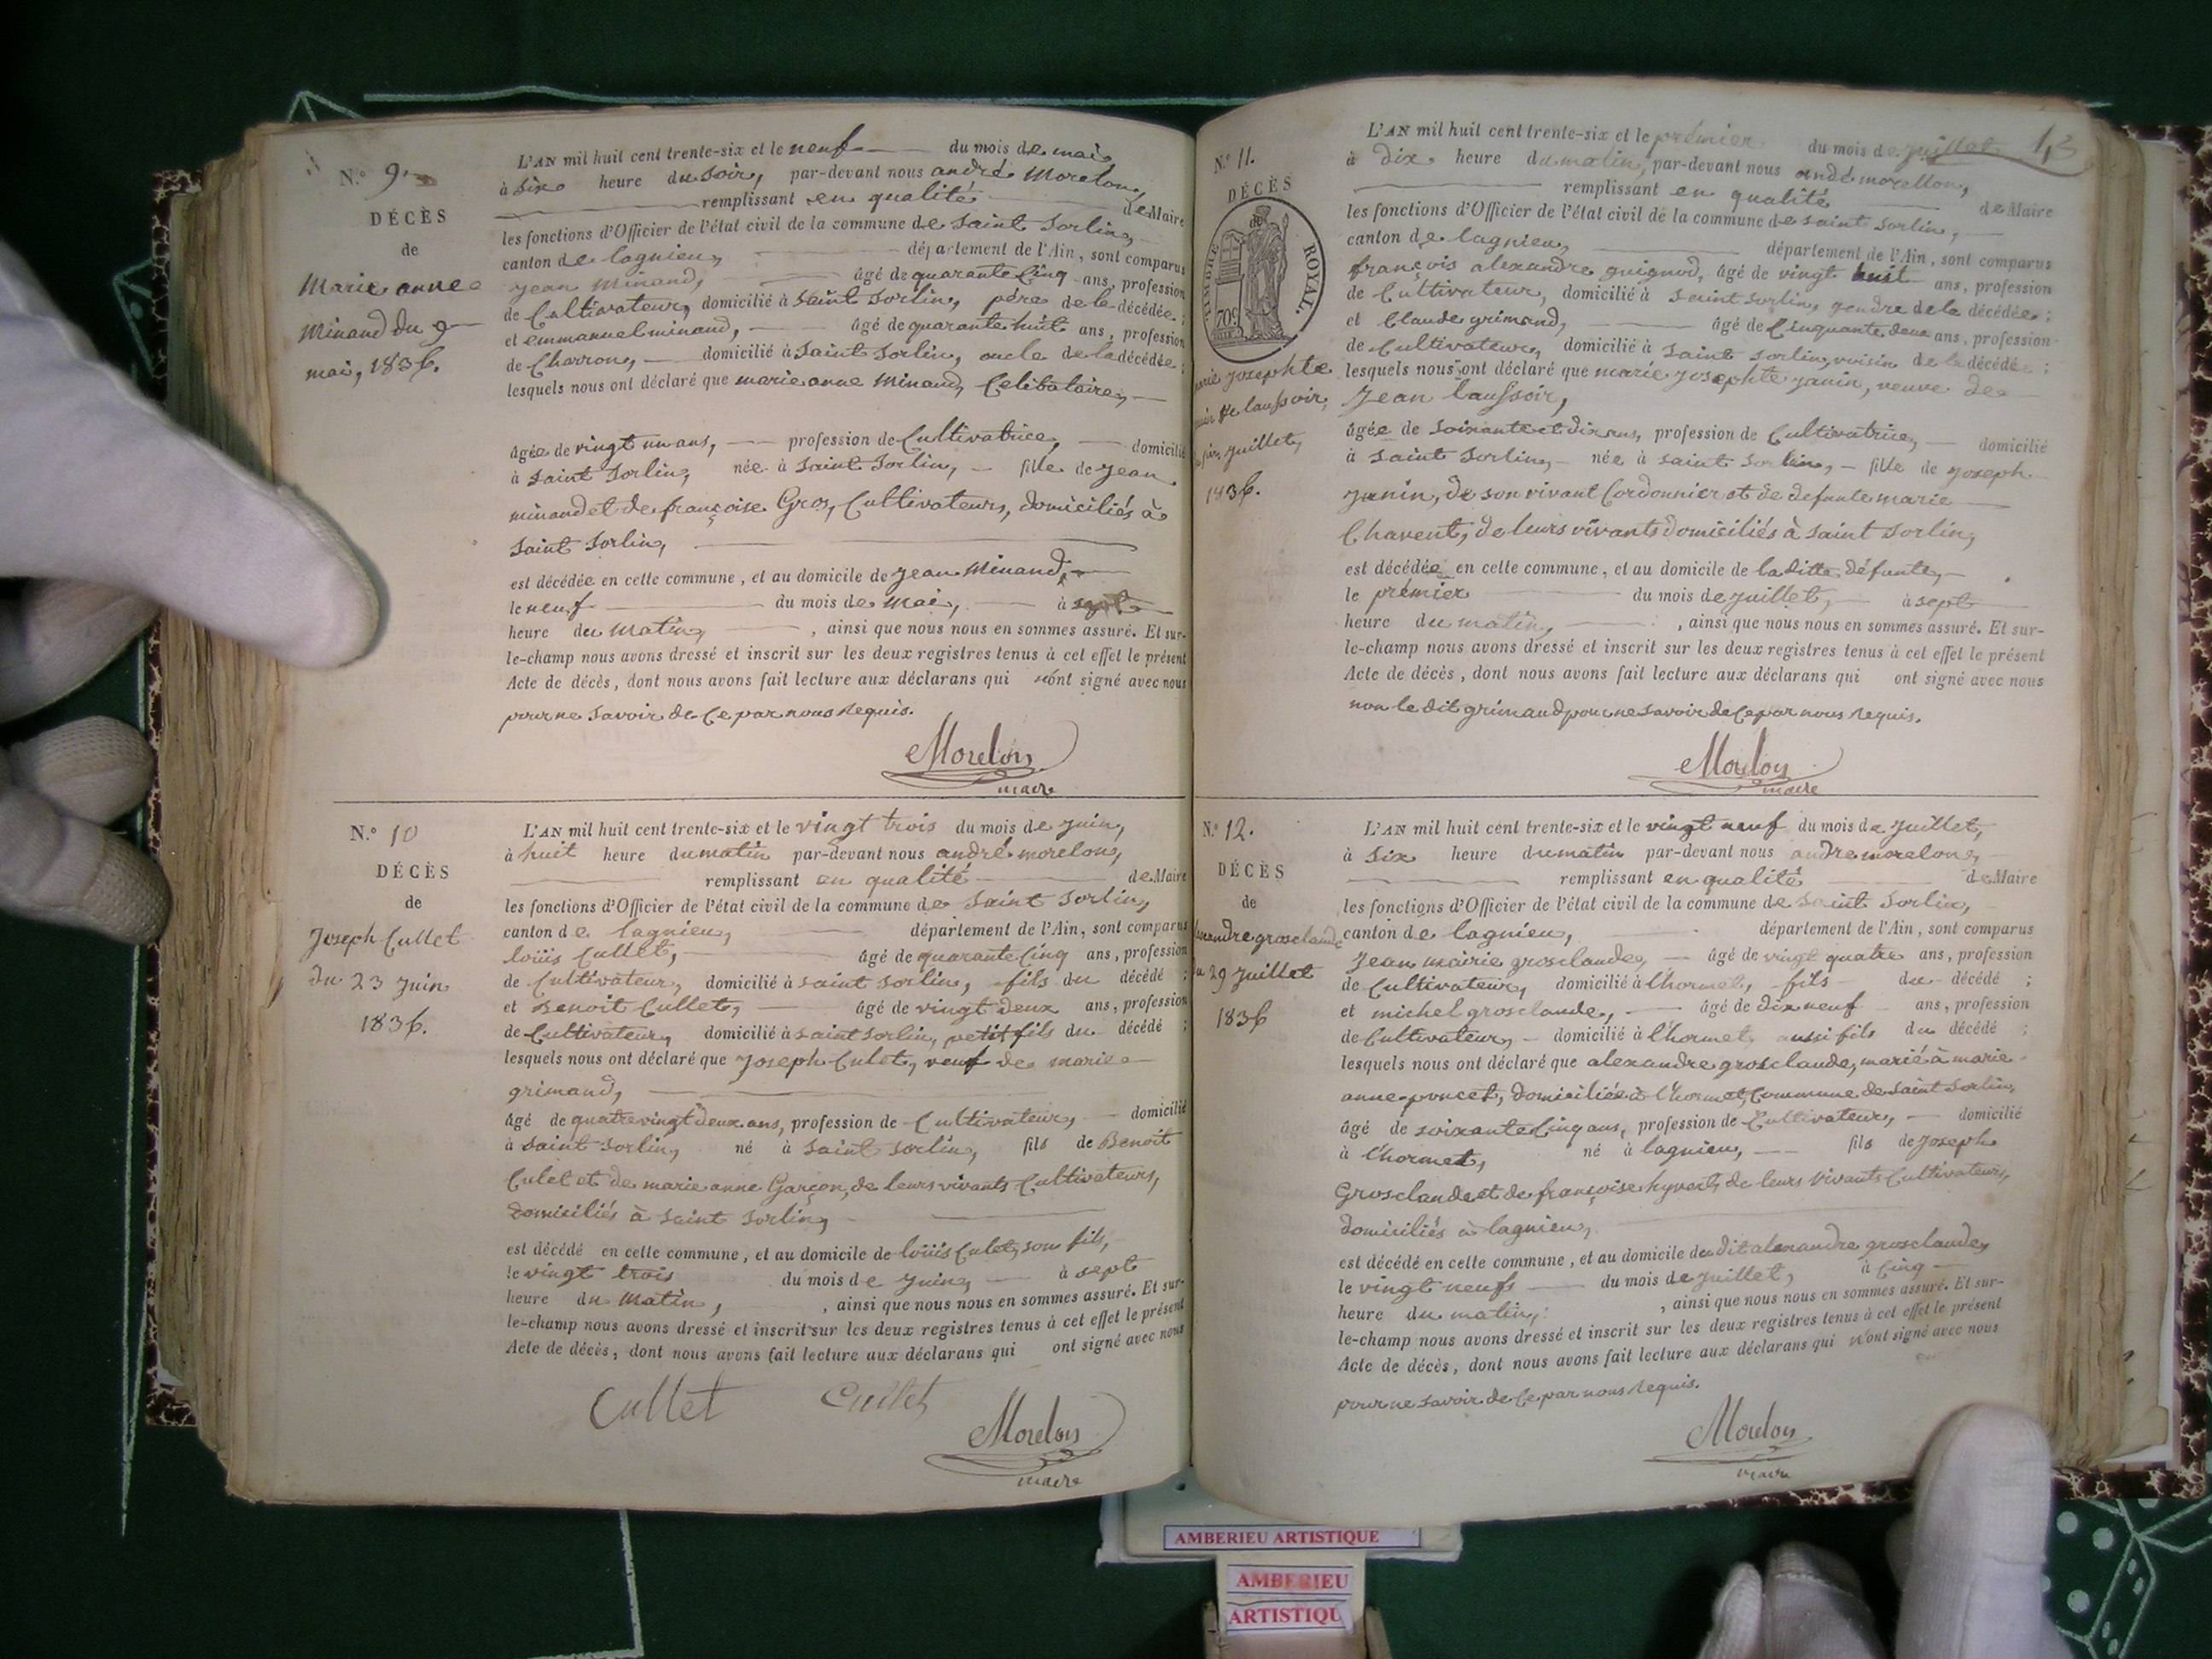 N.o 9.
DÉCÈS
de
Marie anne
Minand du 9
mai, 1836.
L'AN mil huit cent trente-six et le neuf du mois de mai
à six heure du soir, par-devant nous andré Morelon,
remplissant en qualité de Maire
les fonctions d'Officier de l'état civil de la commune de Saint Sorlin,
canton de lagnieu, département de l'Ain, sont comparus
jean Minand, âgé de quarante cinq ans, profession
de Cultivateur, domicilié à Saint Sorlin, père de la décédée ;
et emmanuel minand, âgé de quarante huit ans, profession
de Charron, domicilié à Saint Sorlin, oncle de la décédée ;
lesquels nous ont déclaré que marie anne Minand, Celibataire,
âgée de vingt un ans, profession de Cultivatrice, domicilié
à Saint Sorlin, née à Saint Sorlin, fille de jean
minand et de françoise Gros, Cultivateurs, domiciliés à
Saint Sorlin,
est décédée en cette commune, et au domicile de jean Minand,
le neuf du mois de Mai, à sept
heure du Matin, , ainsi que nous nous en sommes assuré. Et sur-
le-champ nous avons dressé et inscrit sur les deux registres tenus à cet effet le présent
Acte de décès, dont nous avons fait lecture aux déclarans qui n'ont signé avec nous
pour ne savoir de Ce par nous requis.
Morelon
maire
N.o 10
DÉCÈS
de
Joseph Cullet
du 23 juin
1836.
L'AN mil huit cent trente-six et le vingt trois du mois de juin,
à huit heure du matin par-devant nous andré morelon,
remplissant en qualité de Maire
les fonctions d'Officier de l'état civil de la commune de Saint Sorlin,
canton de lagnieu, département de l'Ain, sont comparus
loüis Cullet, âgé de quarante Cinq ans, profession
de Cultivateur, domicilié à saint sorlin, fils du décédé ;
et Benoit Cullet, âgé de vingt deux ans, profession
de Cultivateur, domicilié à saint sorlin, petit fils du décédé ;
lesquels nous ont déclaré que Joseph Culet, veuf de marie
grimand,
âgé de quatre vingt deux ans, profession de Cultivateur, domicilié
à saint sorlin, né à Saint sorlin, fils de Benoit
Culet et de marie anne Garçon, de leurs vivants Cultivateurs,
domiciliés à Saint Sorlin,
est décédé en cette commune, et au domicile de loüis Culet, son fils,
le vingt trois du mois de juin, à sept
heure du Matin, , ainsi que nous nous en sommes assuré. Et sur-
le-champ nous avons dressé et inscrit sur les deux registres tenus à cet effet le présent
Acte de décès, dont nous avons fait lecture aux déclarans qui ont signé avec nous
Cullet Cullet
Morelon
maire
13
N.o 11.
DÉCÈS
de
TIMBRE ROYAL.
70c
josephte
de laussoir,
juillet,
1836.
L'AN mil huit cent trente-six et le prémier du mois de juillet
à dix heure du matin, par-devant nous andé morellon,
remplissant en qualité de Maire
les fonctions d'Officier de l'état civil de la commune de saint sorlin,
canton de lagnieu, département de l'Ain, sont comparus
françois alexandre guignod, âgé de vingt huit ans, profession
de Cultivateur, domicilié à saint sorlin, gendre de la décédée ;
et Claude grimand, âgé de Cinquante deux ans, profession
de Cultivateur, domicilié à saint sorlin, voisin de la décédée ;
lesquels nous ont déclaré que marie josephte janin, veuve de
Jean laussoir,
âgée de soixante et dix ans, profession de Cultivatrice, domicilié
à saint sorlin, née à saint sorlin, fille de joseph
janin, de son vivant Cordonnier et de defunte marie
Chavent, de leurs vivants domiciliés à Saint Sorlin,
est décédée en cette commune, et au domicile de la ditte défunte,
le prémier du mois de juillet, à sept
heure du matin, , ainsi que nous nous en sommes assuré. Et sur-
le-champ nous avons dressé et inscrit sur les deux registres tenus à cet effet le présent
Acte de décès, dont nous avons fait lecture aux déclarans qui ont signé avec nous
non le dit grimand pour ne savoir de Ce par nous requis.
Morelon
maire
N.o 12.
DÉCÈS
de
grosclaude
29 juillet
1836
L'AN mil huit cent trente-six et le vingt neuf du mois de juillet,
à six heure du matin par-devant nous andre morelon,
remplissant en qualité de Maire
les fonctions d'Officier de l'état civil de la commune de saint sorlin,
canton de lagnieu, département de l'Ain, sont comparus
Jean mairie grosclaude, âgé de vingt quatre ans, profession
de Cultivateur, domicilié à l'hormet, fils du décédé ;
et michel grosclaude, âgé de dix neuf ans, profession
de Cultivateur, domicilié à l'hormet, aussi fils du décédé ;
lesquels nous ont déclaré que alexandre grosclaude, marié à marie
anne poncet, domiciliée à l'hormet, Commune de Saint Sorlin,
âgé de soixante Cinq ans, profession de Cultivateur, domicilié
à l'hormet, né à lagnieu, fils de joseph
Grosclaude et de françoise hyvert, de leurs vivants Cultivateurs,
domiciliés à lagnieu,
est décédé en cette commune, et au domicile du dit alexandre grosclaude,
le vingt neuf du mois de juillet, à Cinq
heure du matin, , ainsi que nous nous en sommes assuré. Et sur-
le-champ nous avons dressé et inscrit sur les deux registres tenus à cet effet le présent
Acte de décès, dont nous avons fait lecture aux déclarans qui n'ont signé avec nous
pour ne savoir de Ce par nous requis.
Morelon
maire
AMBERIEU ARTISTIQUE
AMBERIEU
ARTISTIQU